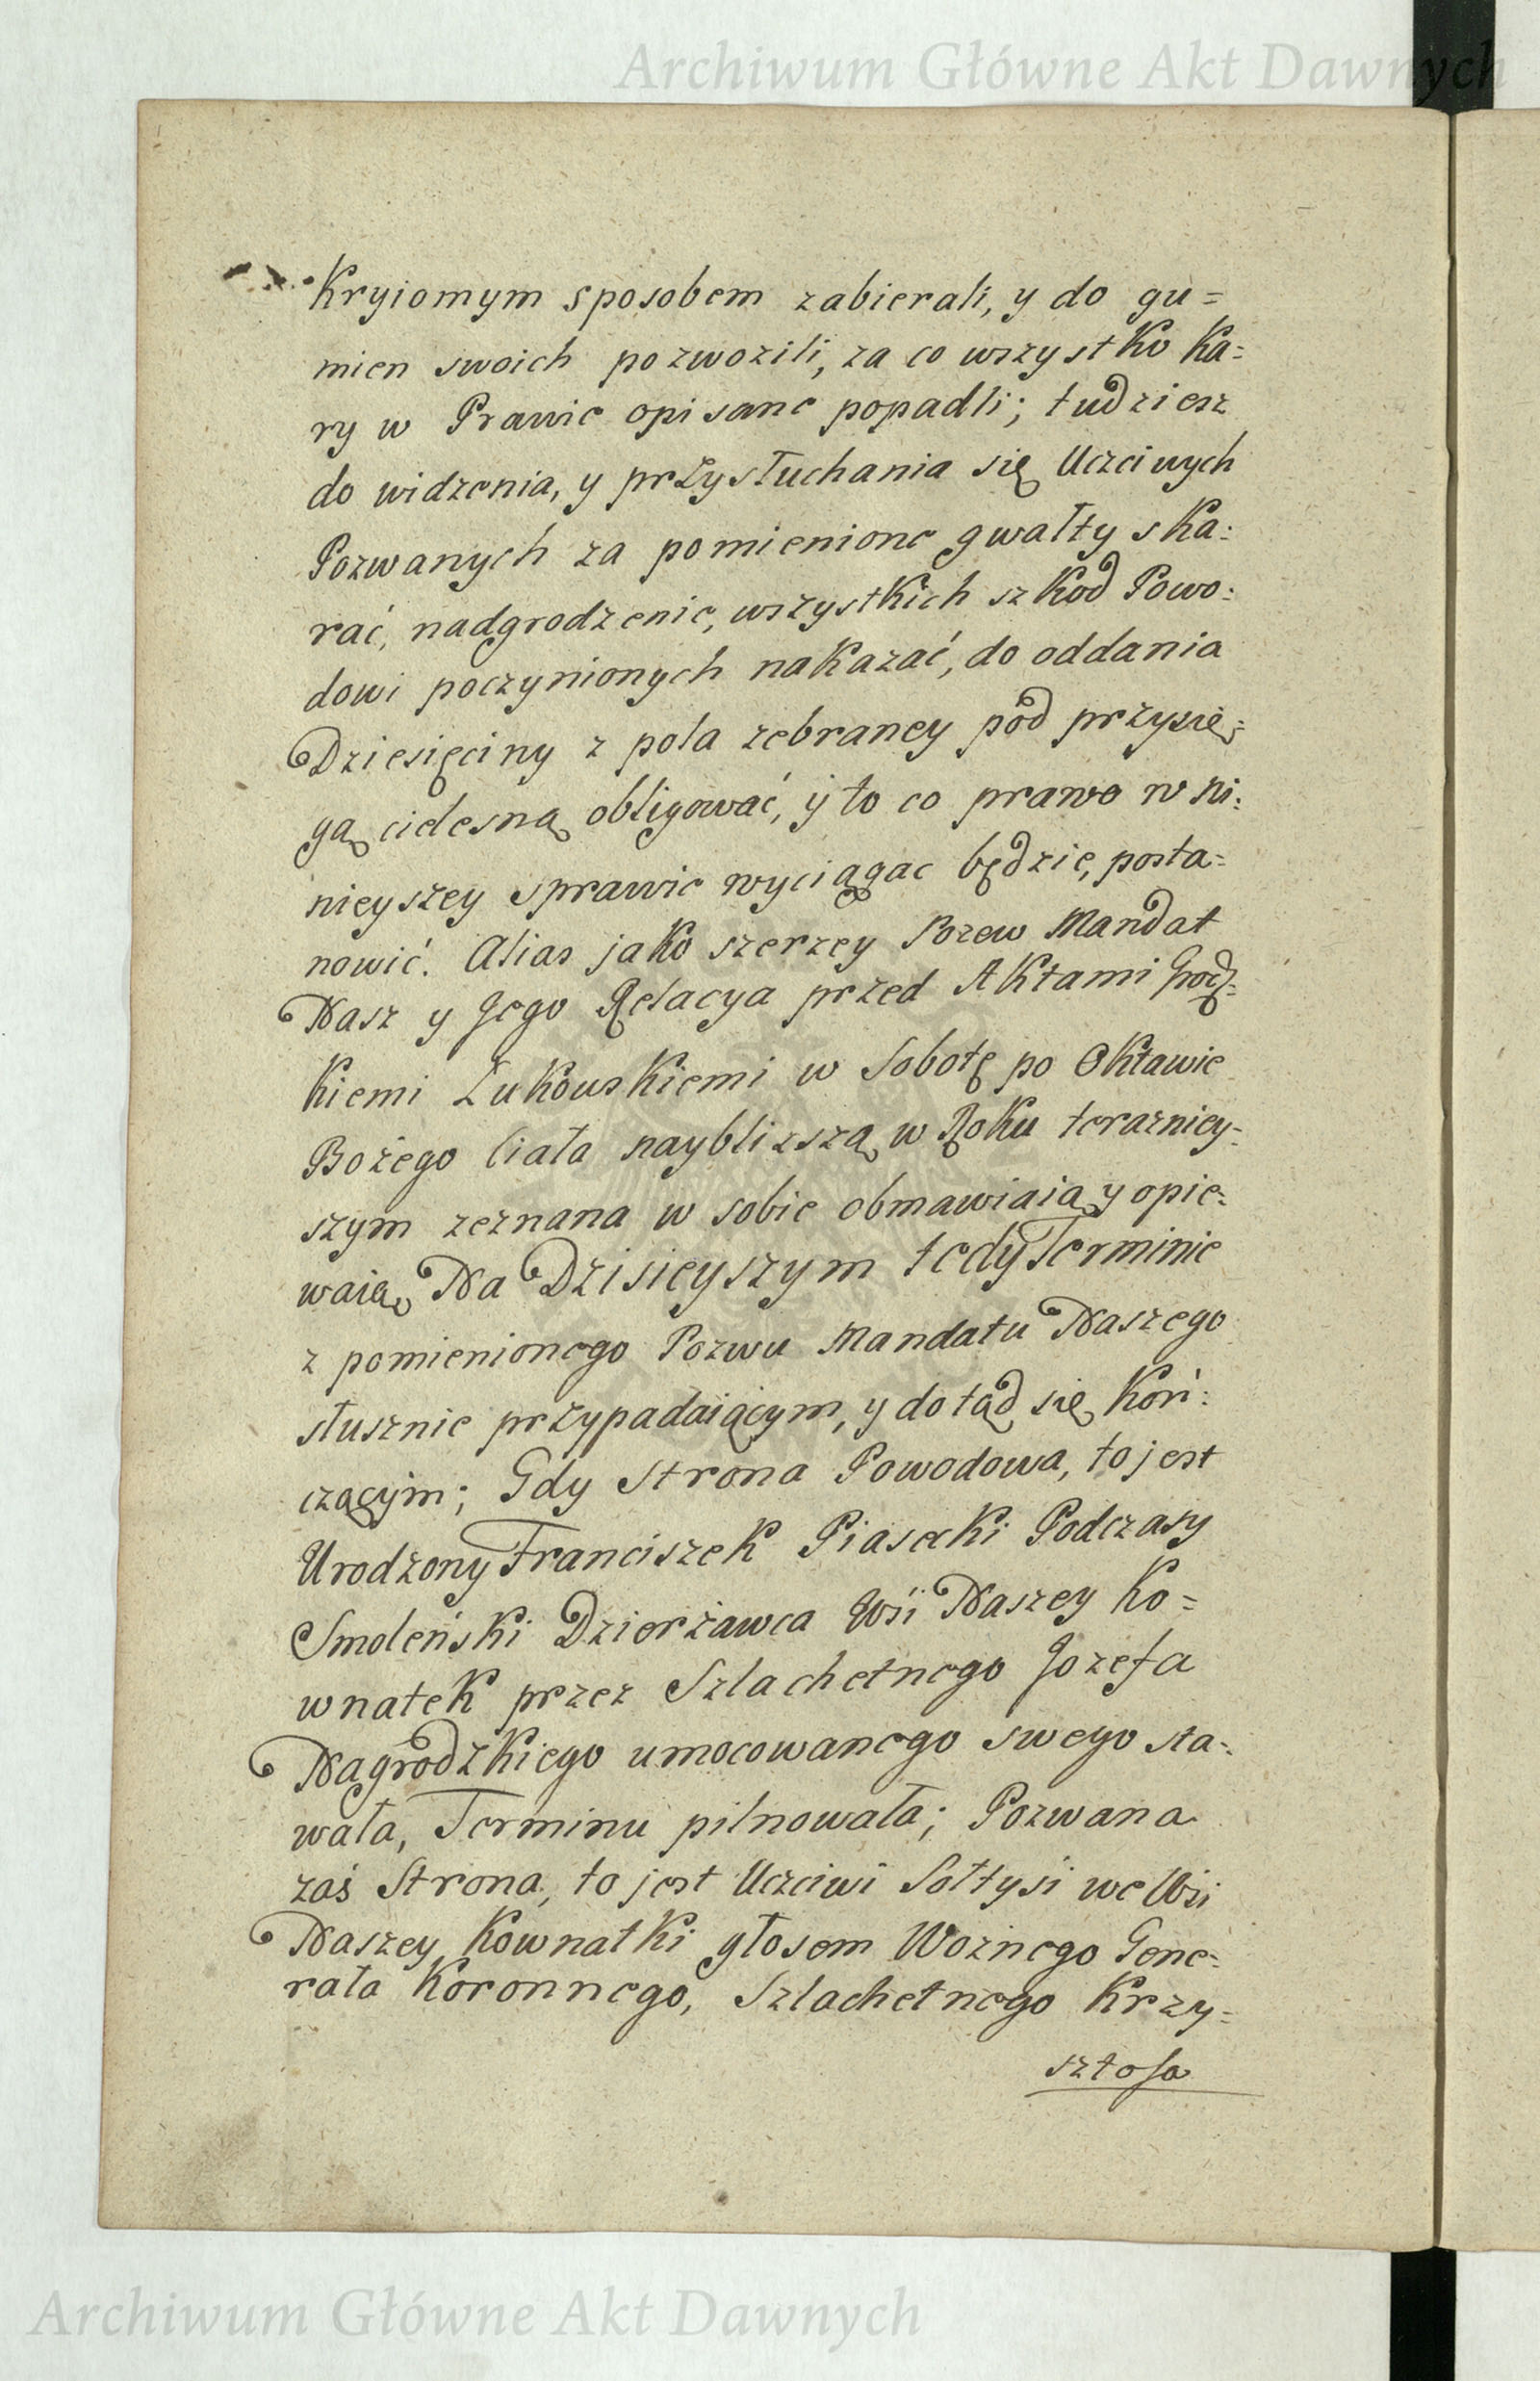 Archiwum Główne Akt Dawnych
Kryiomym sposobem zabierali, y do gu=
mien swoich pozwozili, za co wszystko ka=
ry w Prawie opisane popadli; tudziesz
do widzenia, y przysłuchania się Uczciwych
Pozwanych za pomienione gwałty ska:
rać, nadgrodzenie, wszystkich szkod Powo:
dowi poczynionych nakazać, do oddania
Dziesięciny z pola zebraney pod przysię=
gą cielesną obligować, y to co prawo w ni:
nieyszey sprawie wyciągac będzie, posta=
nowić. Alias jako szerzey Pozew Mandat
Nasz y Jego Relacya przed Aktami Grodz=
kiemi Łukowskiemi w Sobotę po Oktawie
Bożego Ciała naybliższą w Roku teraznіey=
szym zeznana w sobie obmawiaią y opie=
waią. Na Dzisieyszym tedy Terminie
z pomienionego Pozwu Mandatu Naszego
słusznie przypadaiącym, y dotąd się koń:
czącym; Gdy Strona Powodowa, to jest
Urodzony Franciszek Piasecki Podczasy
Smoleński Dzierżawca Wsi Naszey Ko=
wnatek przez Szlachetnego Jozefa
Nagrodzkiego umocowanego swego sta=
wała, Terminu pilnowała; Pozwana
zaś Strona, to jest Uczciwi Sołtysi we Wsi
Naszey Kownatki głosem Woznego Gene=
rała Koronnego, Szlachetnego Krzy=
sztofa
Archiwum Główne Akt Dawnych